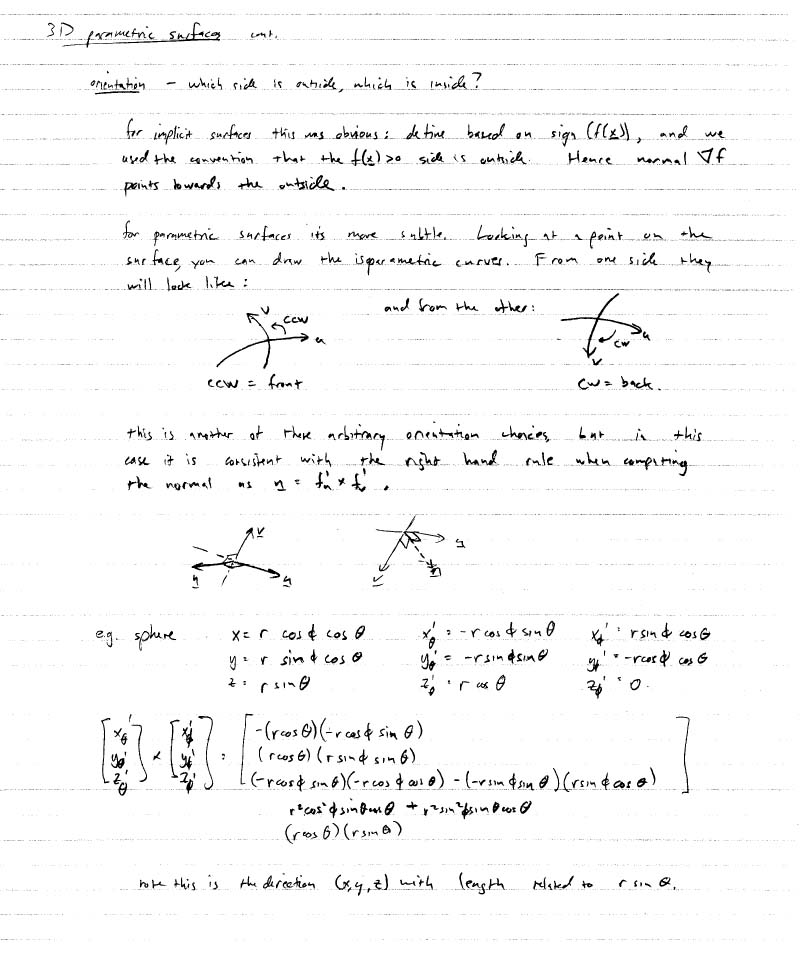 3D parametric surfaces cont.
orientation – which side is outside, which is inside?
for implicit surfaces this was obvious: define based on sign (f(x)), and we
used the convention that the f(x) >0 side is outside. Hence normal ∇f
points towards the outside.
for parametric surfaces its more subtle. Looking at a point on the
surface, you can draw the isoparametric curves. From one side they
will look like: and from the other:
v ccw u
cw u v
ccw = front cw = back.
this is another of those arbitrary orientation choices, but in this
case it is consistent with the right hand rule when computing
the normal as n = f'u × f'v .
v n u
u v n
e.g. sphere x = r cos φ cos θ x'θ = -r cos φ sin θ x'φ = r sin φ cos θ
y = r sin φ cos θ y'θ = -r sin φ sin θ y'φ = -r cos φ cos θ
z = r sin θ z'θ = r cos θ z'φ = 0.
[x'θ y'θ z'θ] × [x'φ y'φ z'φ] = [ -(r cos θ)(-r cos φ sin θ)
(r cos θ)(r sin φ sin θ)
(-r cos φ sin θ)(-r cos φ cos θ) - (-r sin φ sin θ)(r sin φ cos θ) ]
r² cos² φ sin θ cos θ + r² sin² φ sin θ cos θ
(r cos θ)(r sin θ)
note this is the direction (x, y, z) with length related to r sin θ.